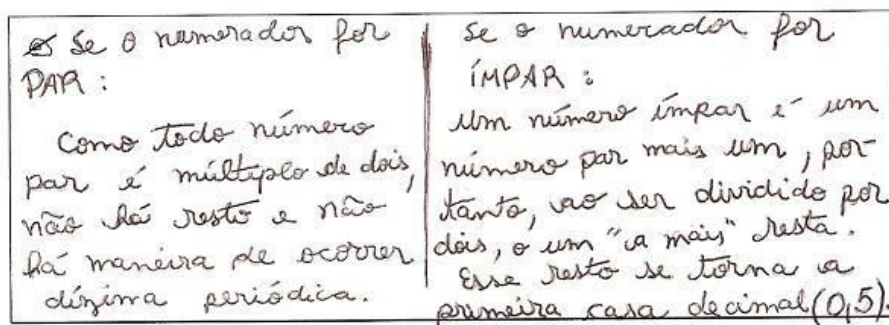 Se o numerador for
PAR:
Como todo número
par é múltiplo de dois,
não há resto e não
há maneira de ocorrer
dízima periódica.
Se o numerador for
ÍMPAR:
Um número ímpar é um
número par mais um, por-
tanto, ao ser dividido por
dois, o um "a mais" resta.
Esse resto se torna a
primeira casa decimal (0,5).